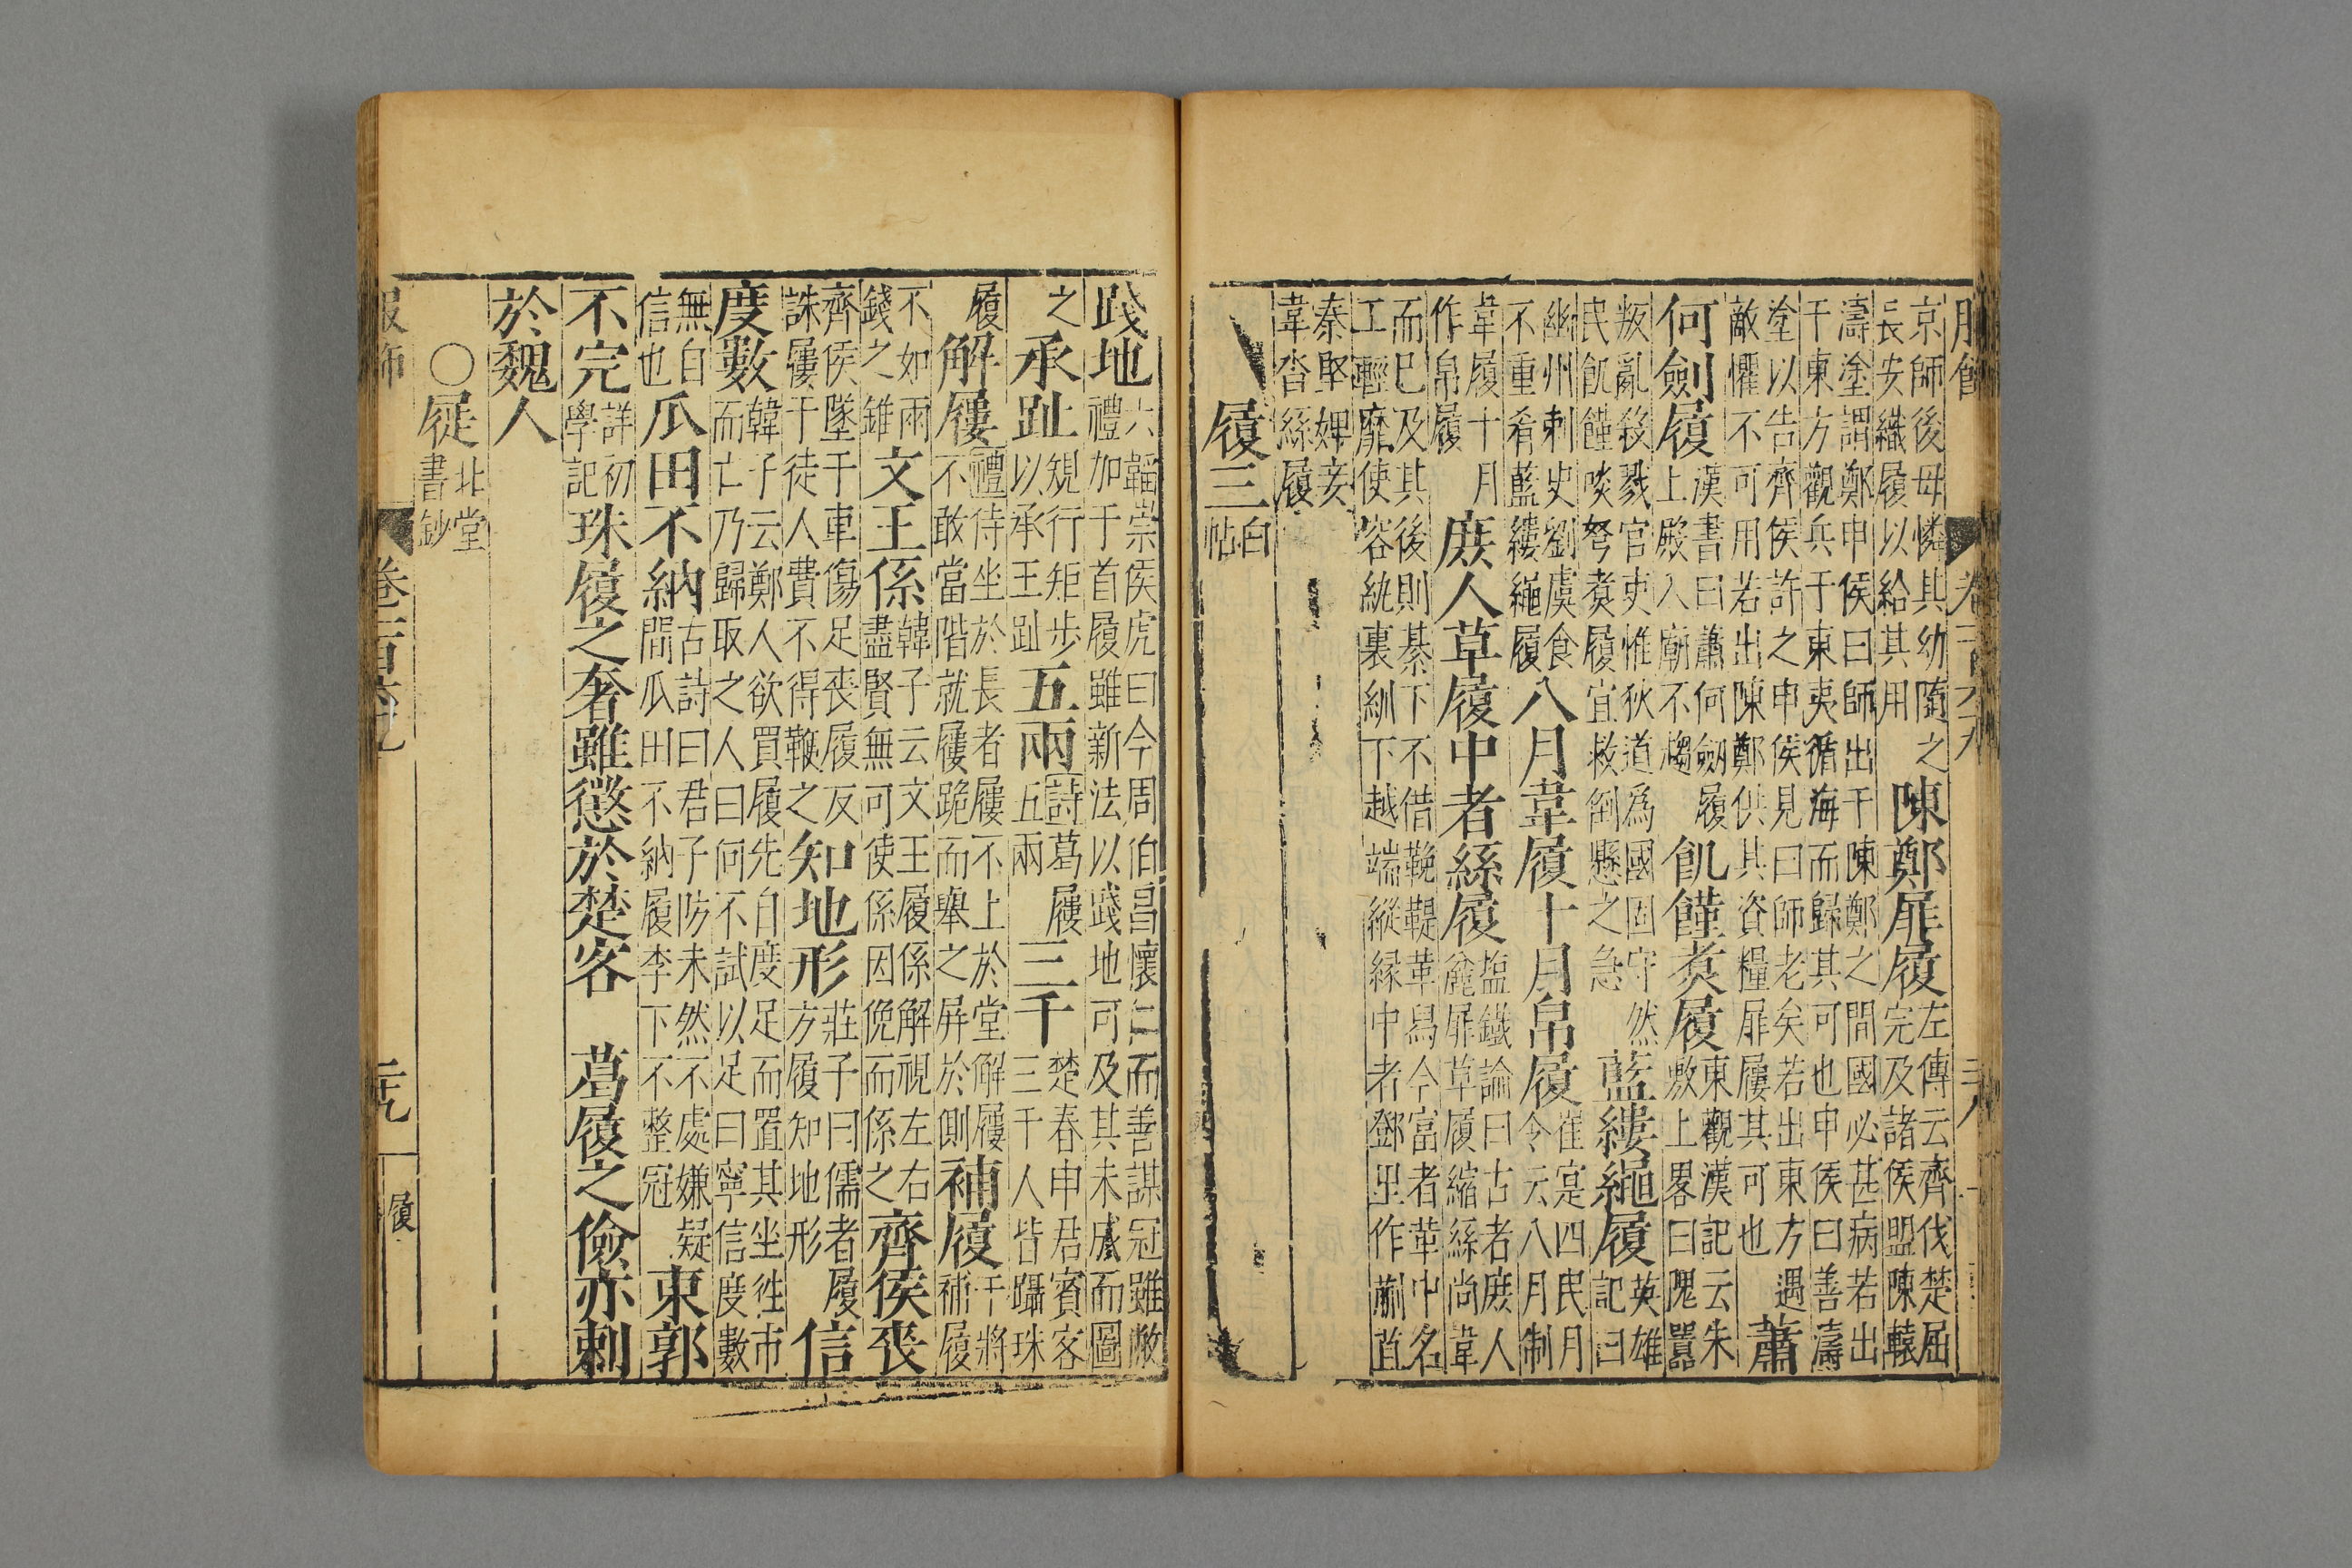 京師後母憐其幼隨之
長安織履以給其用
陳鄭屝屨
左傳云齊伐楚屈
完及諸侯盟陳轅
濤塗謂鄭申侯曰師出于陳鄭之間國必甚病若出
于東方觀兵于東夷循海而歸其可也申侯曰善濤
塗以告齊侯許之申侯見曰師老矣若出東方遇
敵懼不可用若出陳鄭供其資糧屝屨其可也
蕭
何劍履
漢書曰蕭何劒履
上殿入廟不趨
飢饉煮履
東觀漢記云朱
敷上畧曰隗囂
叛亂殺戮官吏惟狄道為國固守然
民飢饉啖弩煮履宜救倒懸之急
藍縷繩履
英雄
記曰
幽州刺史劉虞食
不重肴藍縷繩履
八月韋履十月帛履
崔寔四民月
令云八月制
韋履十月
作帛履
庶人草履中者絲履
塩鐵論曰古者庶人
麄屝草履縮絲尚韋
而已及其後則綦下不借鞔鞮革舄今富者革中名
工輕靡使容紈裏紃下越端縱縁中者鄧里作蒯苴
秦堅婢妾
韋沓絲履
履三
白
帖
踐地
六韜崇侯虎曰今周伯昌懷仁而善謀冠雖敝
禮加于首履雖新法以踐地可及其未成而圖
之
承趾
規行矩步
以承王趾
五兩
詩葛屨
五兩
三千
楚春申君賓客
三千人皆躡珠
履
解屨
禮侍坐於長者屨不上於堂解屨
不敢當階就屨跪而舉之屏於側
補履
干將
補履
不如兩
錢之錐
文王係
韓子云文王履係解視左右
盡賢無可使係因俛而係之
齊侯喪
齊侯墜于車傷足喪履反
誅屨于徒人費不得鞭之
知地形
莊子曰儒者履
方履知地形
信
度數
韓子云鄭人欲買履先自度足而置其坐往市
而亡乃歸取之人曰何不試以足曰寧信度數
無自
信也
瓜田不納
古詩曰君子防未然不處嫌疑
間瓜田不納履李下不整冠
東郭
不完
詳初
學記
珠履之奢雖懲於楚客　葛屨之儉亦刺
於魏人
○屣
北堂
書鈔
履